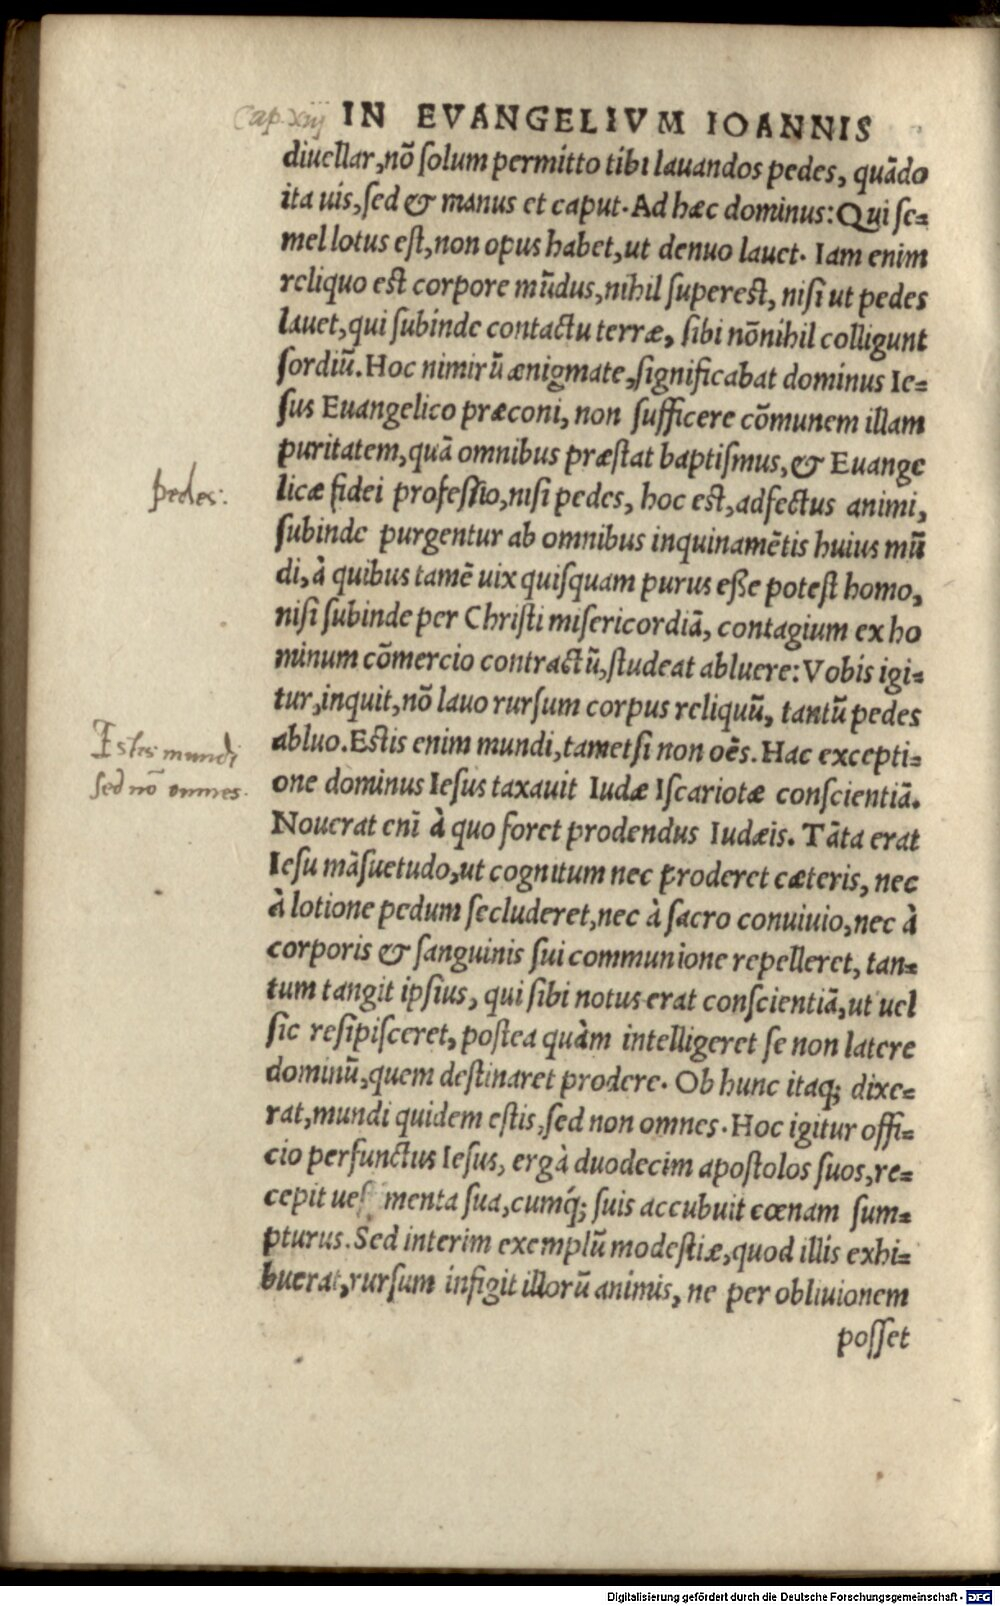 Cap. xiij IN EVANGELIVM IOANNIS
diuellar, nō ſolum permitto tibi lauandos pedes, quādo
ita uis, ſed & manus et caput. Ad hæc dominus: Qui ſe=
mel lotus eſt, non opus habet, ut denuo lauet. Iam enim
reliquo eſt corpore mūdus, nihil ſupereſt, niſi ut pedes
lauet, qui ſubinde contactu terræ, ſibi nōnihil colligunt
ſordiū. Hoc nimirū ænigmate, ſignificabat dominus Ie=
ſus Euangelico præconi, non ſufficere cōmunem illam
puritatem, quā omnibus præſtat baptiſmus, & Euange
pedes:
licæ fidei profeſſio, niſi pedes, hoc eſt, adfectus animi,
ſubinde purgentur ab omnibus inquinamētis huius mū
di, à quibus tamē uix quiſquam purus eſſe poteſt homo,
niſi ſubinde per Chriſti miſericordiā, contagium ex ho
minum cōmercio contractū, ſtudeat abluere: Vobis igi=
tur, inquit, nō lauo rurſum corpus reliquū, tantū pedes
Estis mundi
sed nō omnes.
abluo. Eſtis enim mundi, tametſi non oēs. Hac excepti=
one dominus Ieſus taxauit Iudæ Iſcariotæ conſcientiā.
Nouerat enī à quo foret prodendus Iudæis. Tāta erat
Ieſu māſuetudo, ut cognitum nec proderet cæteris, nec
à lotione pedum ſecluderet, nec à ſacro conuiuio, nec à
corporis & ſanguinis ſui communione repelleret, tan=
tum tangit ipſius, qui ſibi notus erat conſcientiā, ut uel
ſic reſipiſceret, poſtea quàm intelligeret ſe non latere
dominū, quem deſtinaret prodere. Ob hunc itaq; dixe=
rat, mundi quidem eſtis, ſed non omnes. Hoc igitur offi=
cio perfunctus Ieſus, ergà duodecim apoſtolos ſuos, re=
cepit ueſ menta ſua, cumq́; ſuis accubuit cœnam ſum=
pturus. Sed interim exemplū modeſtiæ, quod illis exhi=
buerat, rurſum infigit illorū animis, ne per obliuionem
poſſet
Digitalisierung gefördert durch die Deutsche Forschungsgemeinschaft - DFG